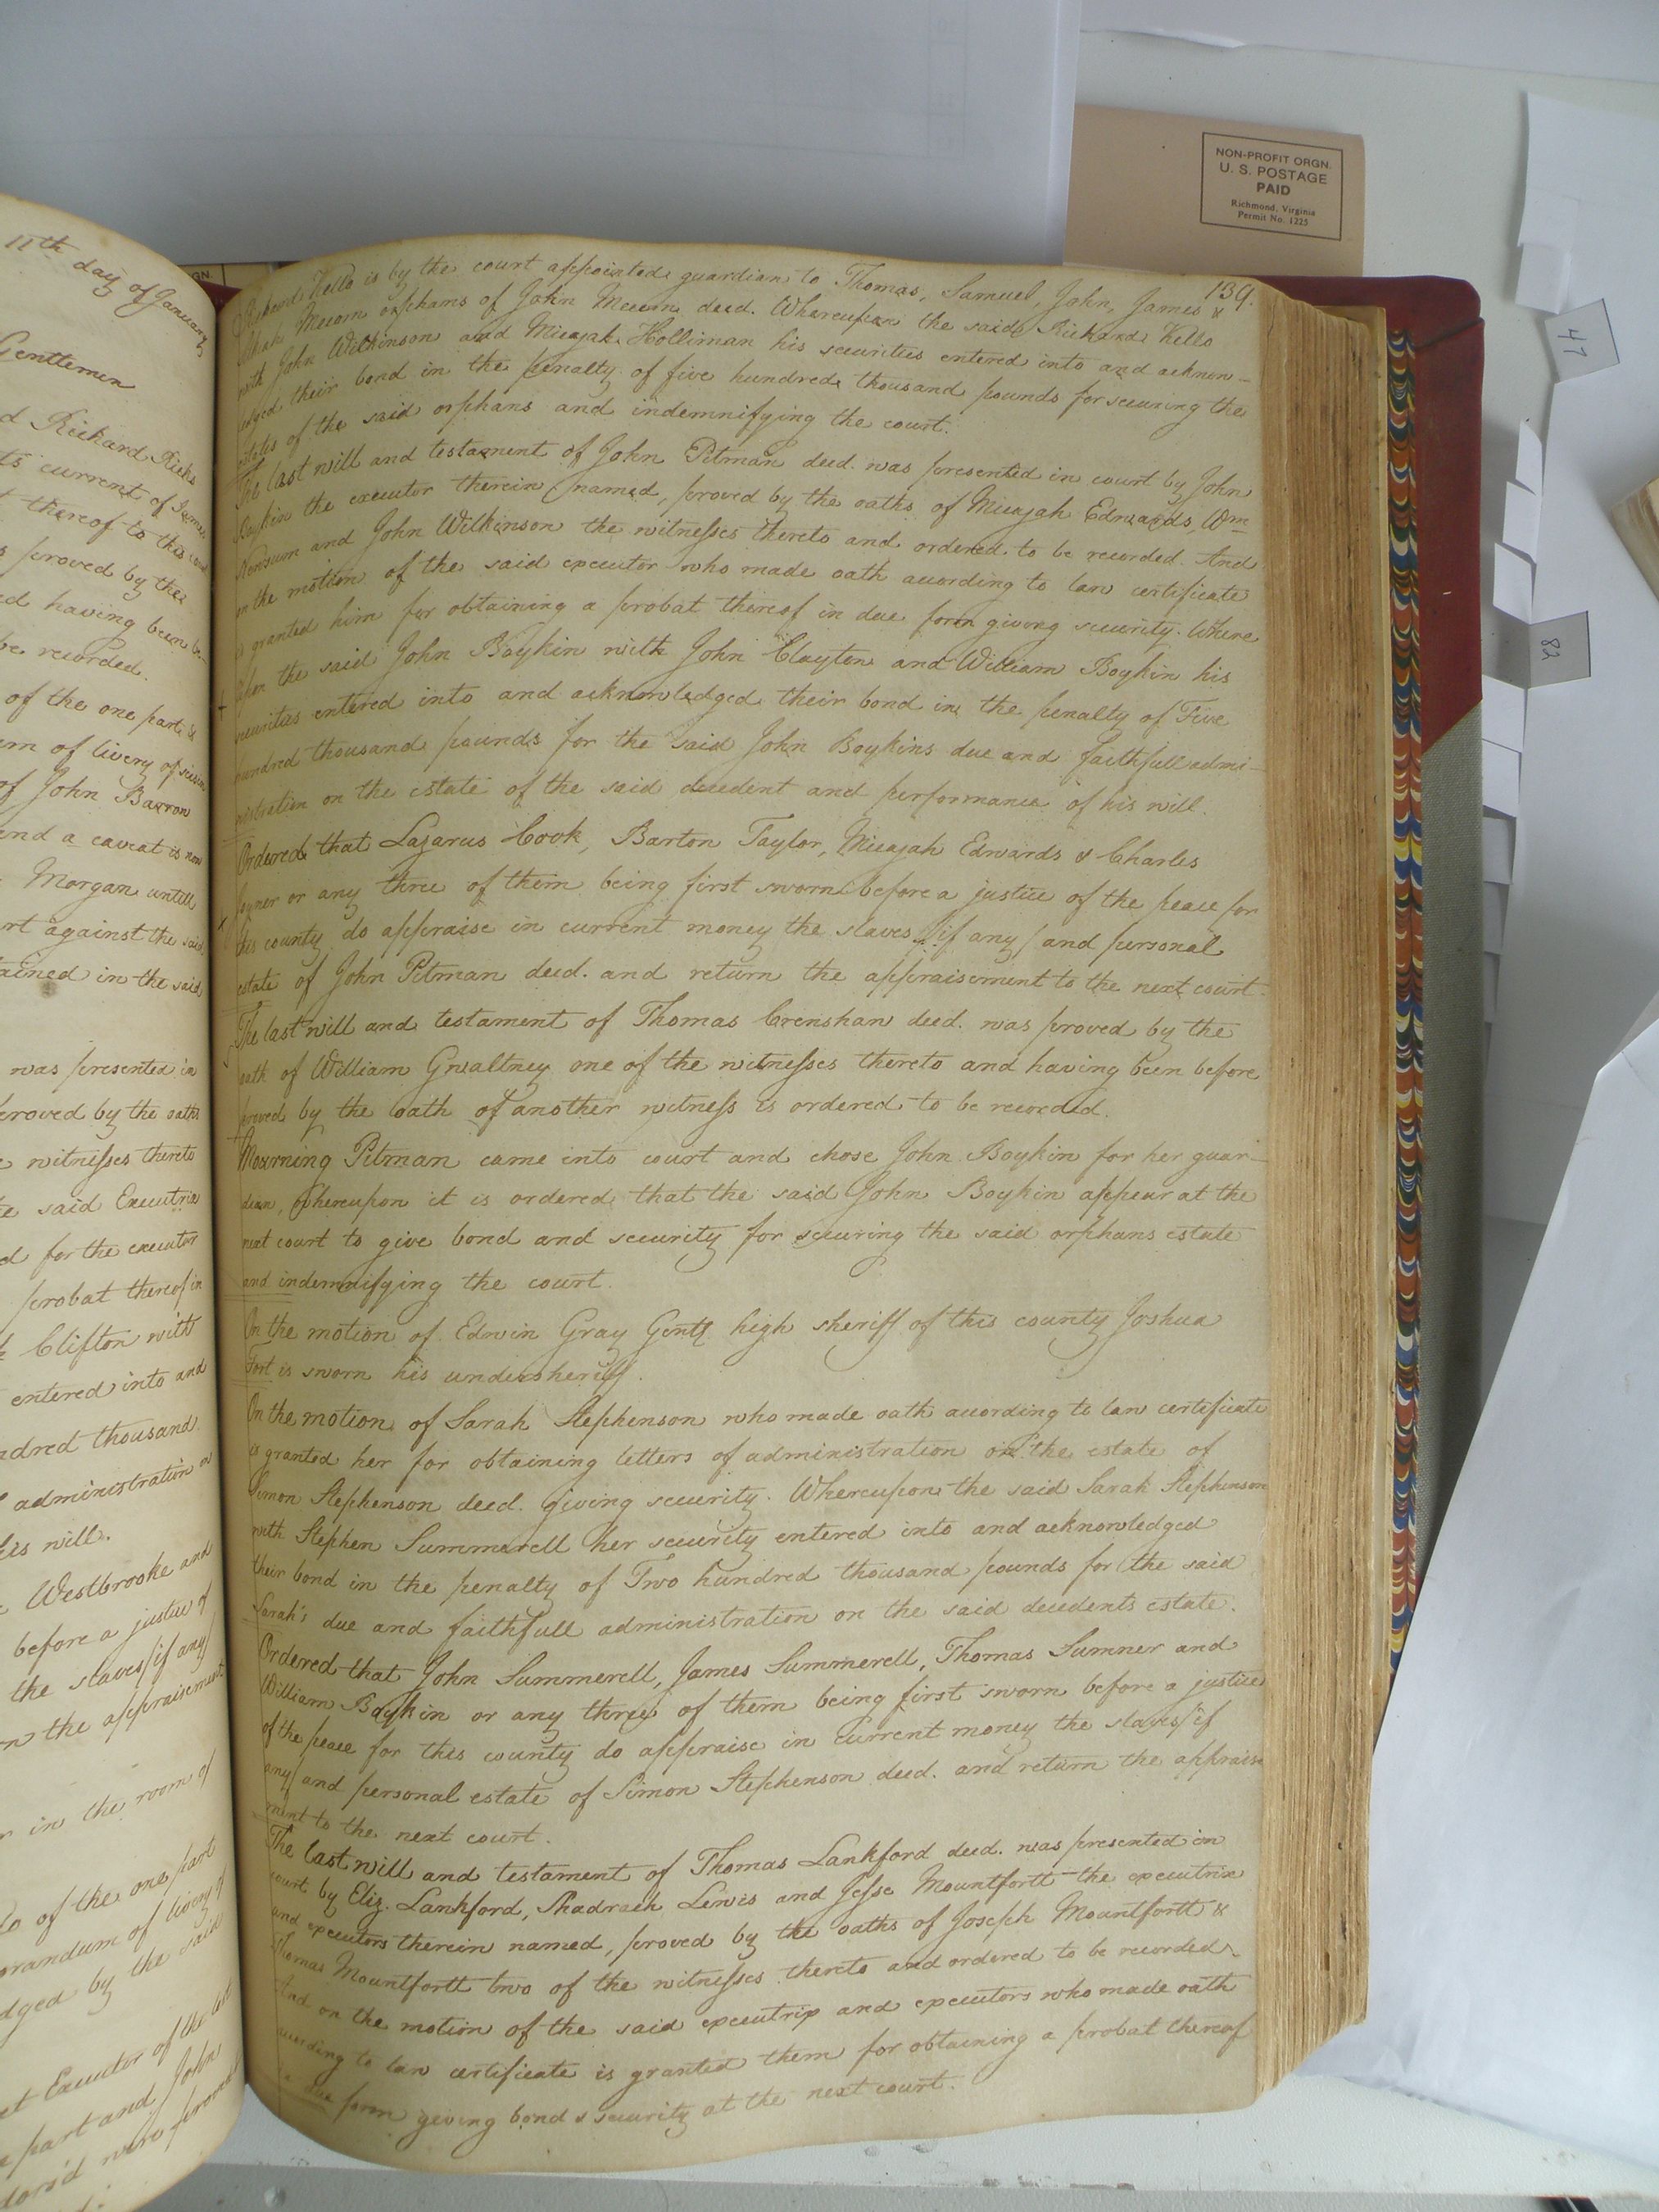 NON-PROFIT ORGN.
U. S. POSTAGE
PAID
Richmond, Virginia
Permit No. 1225
47
82
GN.
11th day of January
Gentlemen
d Richard Ricks
ts current of James
t thereof to this court
s proved by the
ed having been be-
be recorded.
of the one part &
um of livery of seisin
of John Barron
and a caveat is now
Morgan untill
rt against the said
tained in the said
was presented in
proved by the oaths
e witnesses thereto
e said Executrix
d for the executor
probat thereof in
Clifton with
entered into and
ndred thousand
administration on
his will.
Westbrooke and
before a justice of
the slaves/if any/
n the appraisement
r in the room of
of the one part
orandum of livery of
dged by the said
et Executor of the
part and John
were proved
139.
Richard Kello is by the court appointed guardian to Thomas, Samuel, John, James &
orphans of John deed. Whereupon the said Richard Kello
with John Wilkinson and Micajah Holliman his securities entered into and acknow-
ledged their bond in the penalty of five hundred thousand pounds for securing the
estates of the said orphans and indemnifying the court.
The last will and testament of John Pitman deed. was presented in court by John
Boykin the executor therein named, proved by the oaths of Micajah Edwards, Wm
Newsum and John Wilkinson the witnesses thereto and ordered to be recorded. And
on the motion of the said executor who made oath according to law certificate
is granted him for obtaining a probat thereof in due form giving security. Where
upon the said John Boykin with John Clayton and William Boykin his
securities entered into and acknowledged their bond in the penalty of Five
hundred thousand pounds for the said John Boykins due and faithfull admi-
nistration on the estate of the said decedent and performance of his will.
Ordered that Lazarus Cook, Barton Taylor, Micajah Edwards & Charles
Joyner or any three of them being first sworn before a justice of the peace for
this county do appraise in current money the slaves /if any/ and personal
estate of John Pitman deed. and return the appraisement to the next court.
The last will and testament of Thomas Crenshaw deed. was proved by the
oath of William Gwaltney one of the witnesses thereto and having been before
proved by the oath of another witness is ordered to be recorded.
Mourning Pitman came into court and chose John Boykin for her guar-
dian, Whereupon it is ordered that the said John Boykin appear at the
next court to give bond and security for securing the said orphans estate
and indemnifying the court.
On the motion of Edwin Gray Gentl. high sheriff of this county Joshua
Fort is sworn his undersheriff.
On the motion of Sarah Stephenson who made oath according to law certificate
is granted her for obtaining letters of administration on the estate of
Simon Stephenson deed. giving security. Whereupon the said Sarah Stephenson
with Stephen Summerell her security entered into and acknowledged
their bond in the penalty of Two hundred thousand pounds for the said
Sarah's due and faithfull administration on the said decedents estate.
Ordered that John Summerell, James Summerell, Thomas Sumner and
William Boykin or any three of them being first sworn before a justice
of the peace for this county do appraise in current money the slaves/if
any/ and personal estate of Simon Stephenson deed. and return the appraise
ment to the next court.
The last will and testament of Thomas Lankford deed. was presented in
court by Eliz. Lankford, Shadrach Lewis and Jesse Mountfortt the executrix
and executors therein named, proved by the oaths of Joseph Mountfortt &
Thomas Mountfortt two of the witnesses thereto and ordered to be recorded.
And on the motion of the said executrix and executors who made oath
according to law certificate is granted them for obtaining a probat thereof
in due form giving bond & security at the next court.